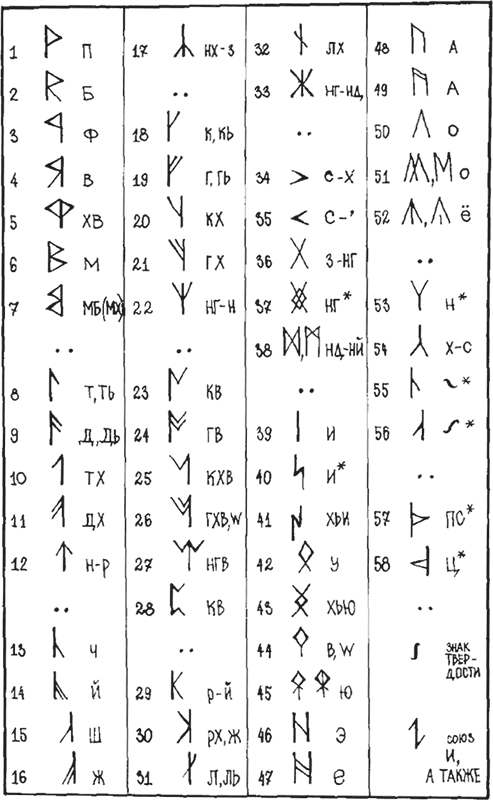 1 П
2 Б
3 Ф
4 В
5 ХВ
6 М
7 МБ(МХ)
..
8 Т,ТЬ
9 Д,ДЬ
10 ТХ
11 ДХ
12 Н-Р
..
13 Ч
14 Й
15 Ш
16 Ж
17 НХ-З
..
18 К,КЬ
19 Г,ГЬ
20 КХ
21 ГХ
22 НГ-Н
..
23 КВ
24 ГВ
25 КХВ
26 ГХВ,W
27 НГВ
28 КВ
..
29 Р-Й
30 РХ,Ж
31 Л,ЛЬ
32 ЛХ
33 НГ-НД
..
34 С-Х
35 С-'
36 З-НГ
37 НГ*
38 НД-НЙ
..
39 И
40 И*
41 ХЬИ
42 У
43 ХЬЮ
44 В,W
45 Ю
46 Э
47 Е
48 А
49 А
50 О
51 О
52 Ё
..
53 Н*
54 Х-С
55 *
56 *
..
57 ПС*
58 Ц*
..
ЗНАК
ТВЕР-
ДОСТИ
СОЮЗ
И,
А ТАКЖЕ